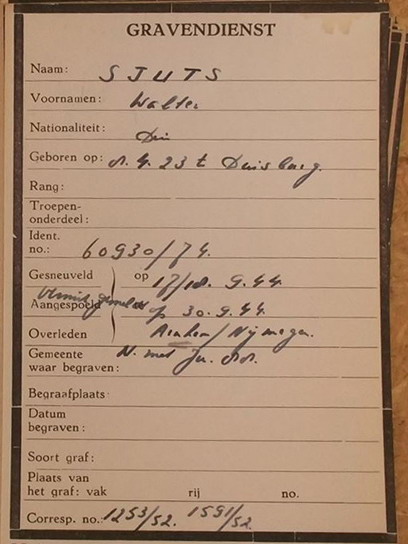 GRAVENDIENST
Naam: SJUTS
Voornamen: Walter
Nationaliteit:
Geboren op: 23 t Duisburg.
Rang:
Troepen-
onderdeel:
Ident.
no.: 60930/74.
Gesneuveld op 17/18. 9.44
Aangespoeld op 30.9.44
Overleden Arnhem/Nijmegen.
Gemeente
waar begraven:
Begraafplaats:
Datum
begraven:
Soort graf:
Plaats van
het graf: vak rij no.
Corresp. no.: 1253/52. 1591/52.